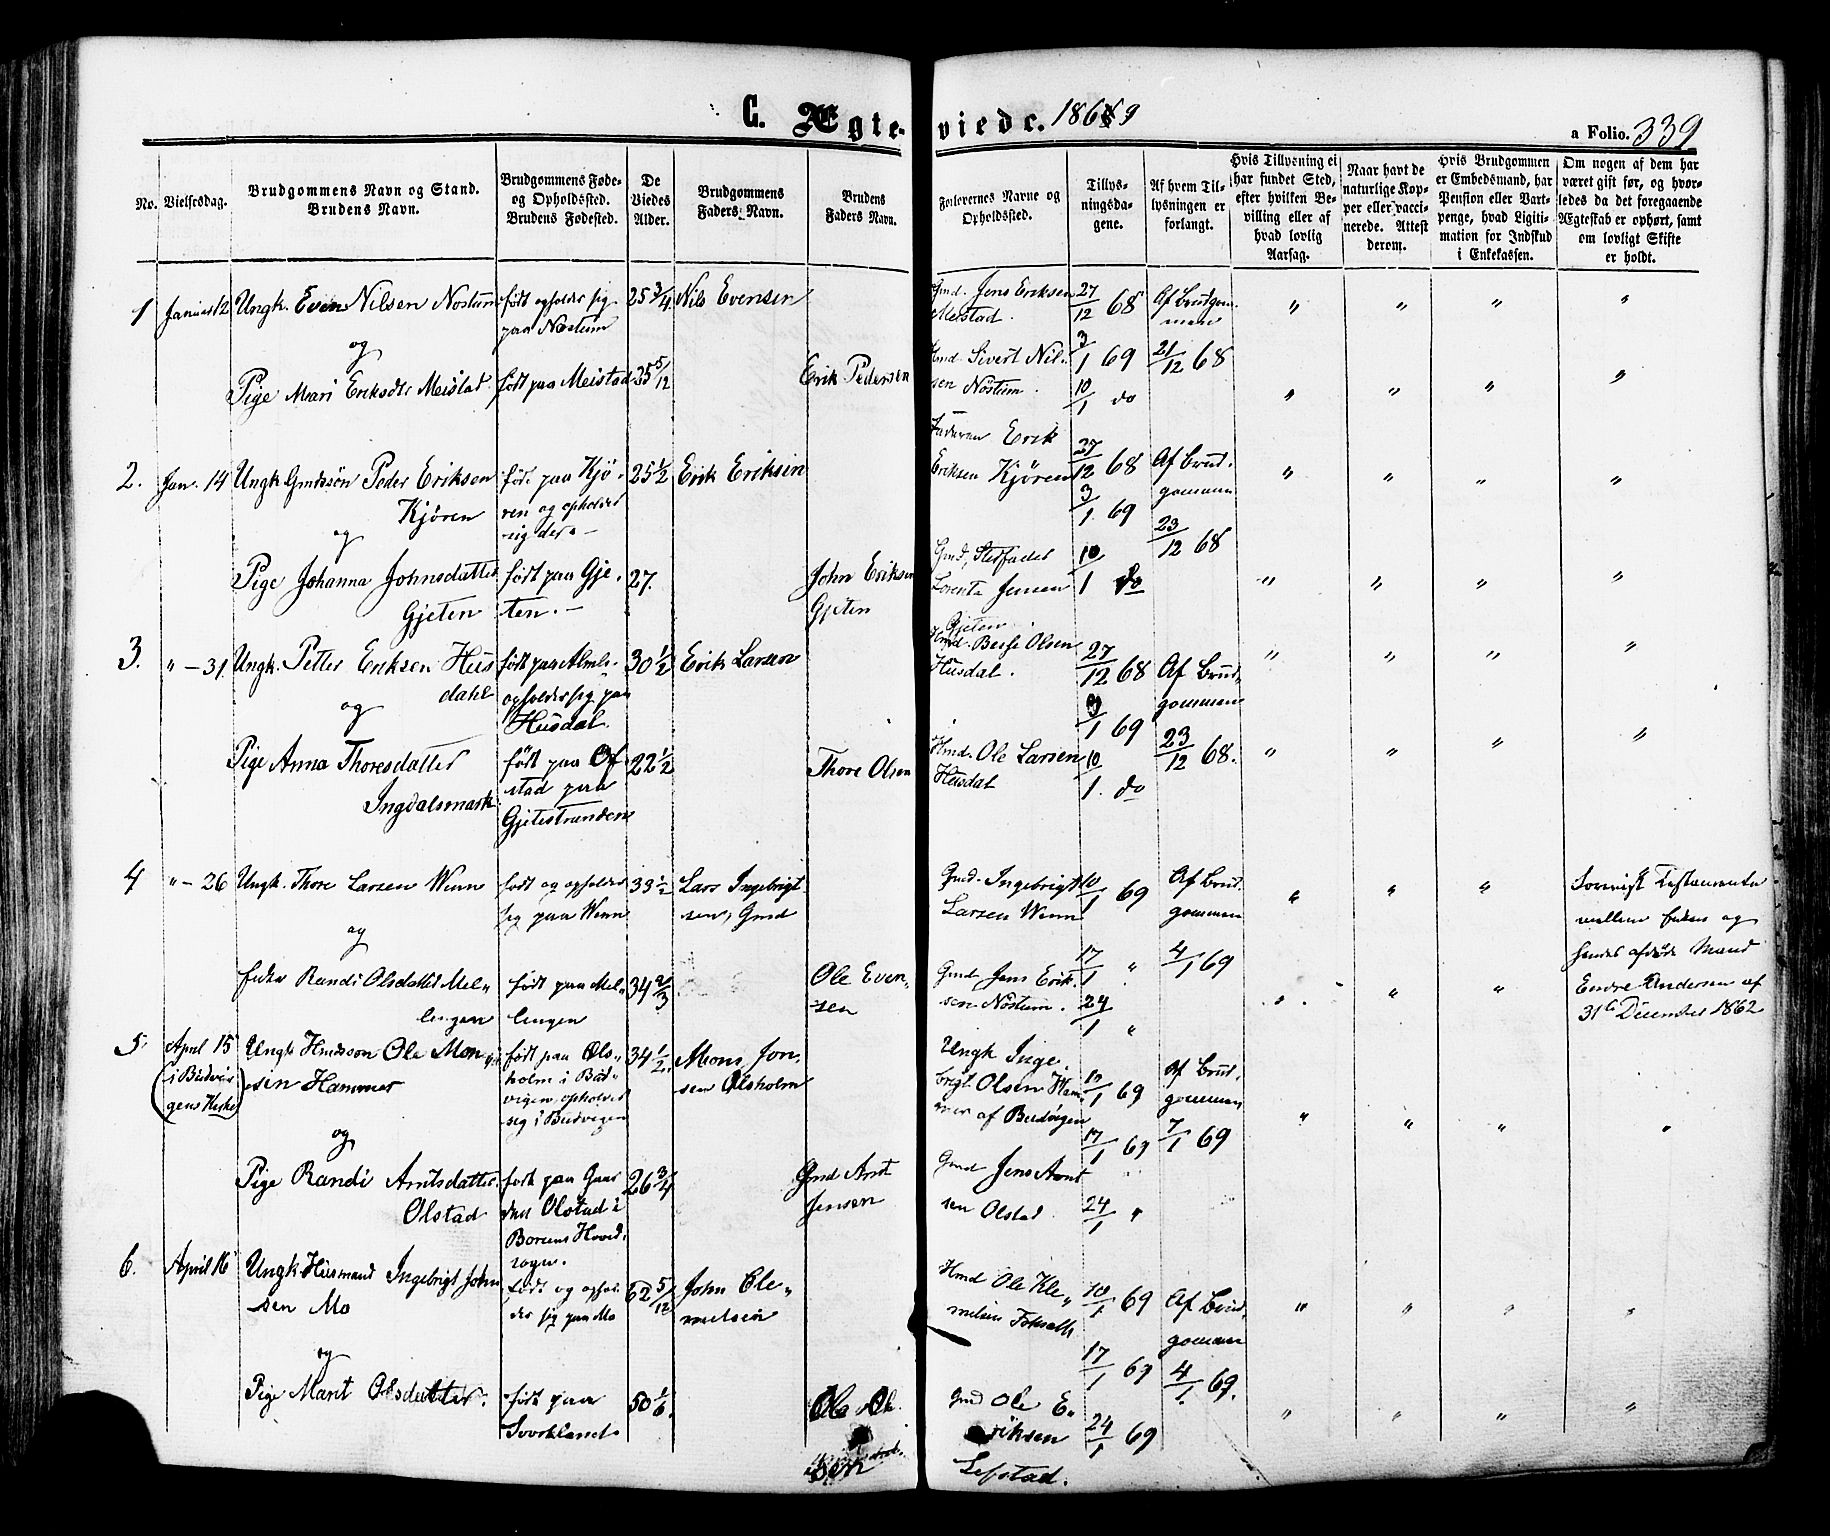 C. Ægte-viede. 1869
a Folio. 339
No.
Vielsesdag.
Brudgommens Navn og Stand.
Brudens Navn.
Brudgommens Føde-
og Opholdssted.
Brudens Fødested.
De
Viedes
Alder.
Brudgommens
Faders Navn.
Brudens
Faders Navn.
Forlovernes Navne og
Opholdssted.
Tillys-
ningsda-
gene.
Af hvem Til-
lysningen er
forlangt.
Hvis Tillysning ei
har fundet Sted,
efter hvilken Be-
villing eller af
hvad lovlig
Aarsag.
Naar havt de
naturlige Kop-
per eller vacci-
nerede. Attest
derom.
Hvis Brudgommen
er Embedsmand, har
Pension eller Vart-
penge, hvad Ligiti-
mation for Indskud
i Enkekassen.
Om nogen af dem har
været gift før, og hvor-
ledes da det foregaaende
Ægteskab er ophørt, samt
om lovligt Skifte
er holdt.
1 Januar 12 Ungk. Even Nilsen Nostum
født opholder sig
paa Nostum
25 3/4 Nils Evensen
Gmd. Jens Eriksen
Meistad.
27/12 68 Af Brudgom-
men
" " " "
og
Pige Mari Eriksdtr Meistad født paa Meistad 35 5/12 Erik Pedersen
Hmd. Sivert Nil-
sen Nostum.
3/1 69 21/12 68
10/1 do
" " " "
2. Jan. 14 Ungk Gmdssøn Peder Eriksen
Kjøren
født paa Kjø-
ren og opholder
sig der. -
25 1/2 Erik Eriksen
Faderen Erik
Eriksen Kjøren
27/12 68 Af Brud-
gommen
3/1 69
23/12 68
" " " "
og
Pige Johanna Johnsdatter
Gjeten
født paa Gje-
ten. -
27.
John Eriksen
Gjeten
Gmd, Stedfader
Lorents Jensen
Gjeten
10/1 do
" " " "
3. " - 31 Ungk. Petter Eriksen Hus
dahl
født paa Almls
opholder sig paa
Husdal.
30 1/2 Erik Larsen
Hmd. Berse Olsen
Husdal.
27/12 68 Af Brud-
gommen
3/1 69
" " " "
og
Pige Anna Thoresdatter
Ingdalsmark
født paa Of
stad paa
Gjetestranden
22 1/2
Thore Olsen
Hmd. Ole Larsen
Husdal
23/12 68.
10/1. do
" " " "
4 " - 26 Ungk. Thore Larsen Winn
født og opholder
sig paa Winn
33 1/2 Lars Ingebrigt
sen, Gmd
Gmd. Ingebrigt
Larsen Winn
10/1 69 Af Brud-
gommen
" " "
Testamente
mellem Enken og
hendes afdøde Mand
Endre Andersen af
31te December 1862
og
Enke Randi Olsdatter Mel-
lingen
født paa Mel-
lingen
34 2/3
Ole Even-
sen
Gmd Jens Erik-
sen Nostum.
17/1 " 4/1 69
24/1 "
" " "
5. April 15
(i Budvigens Kirke)
Ungk. Hmdsson Ole Mon
sen Hammer
født paa Ols-
holm i Bud-
vigen, opholder
sig i Budvigen
34 1/2. Mons Jon-
sen Olsholm
Ungk Inge-
brigt Olsen Ham-
mer af Budvigen
10/1 69 Af Brud-
gommen
17/1 69 7/1 69
" " " "
og
Pige Randi Arntsdatter
Olstad
født paa Gaar
den Olstad i
Borsens Hoved-
sogn.
26 3/4
Gmd Arnt
Jensen
Gmd Jens Arnt
sen Olstad.
24/1 "
6. April 16 Ungk. Husmand Ingebrigt John
sen Mo
født og ophol-
der sig paa Mo
62 5/12 John Cle-
metsen
Hmd Ole Kle-
metsen
10/1 69 Af Brud-
gommen
17/1 69 4/1 69.
" " " "
og
Pige Marit Olsdatter.
født paa
Svorkland
50 1/6.
Ole Ol-
sen
Gmd Ole E-
riksen
Lefstad.
24/1 69
" " " "